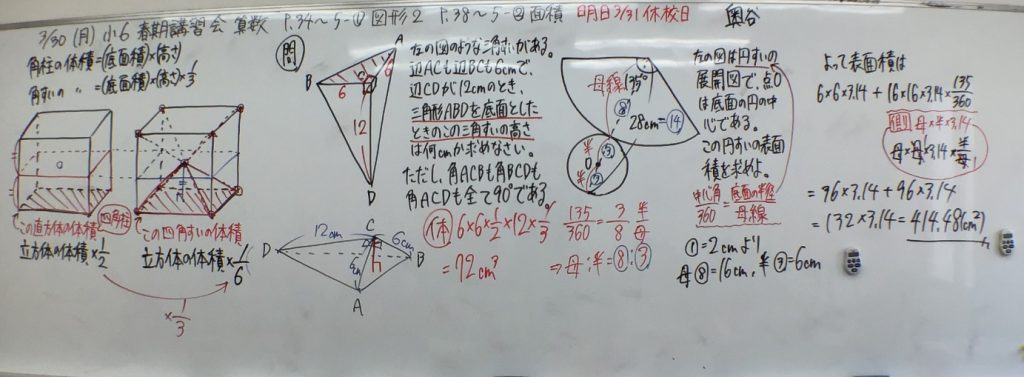 3/30(月) 小6 春期講習会 算数 P.34〜5-① 図形2 P.38〜5-② 面積 明日3/31休校日 奥谷
角柱の体積=(底面積)×(高さ)
角すいの 〃 =(底面積)×(高さ)×1/3
この直方体の体積 四角柱
立方体の体積×1/2
この四角すいの体積
立方体の体積×1/6
×1/3
問
A
B
C
6
6
12
D
左の図のような三角すいがある。
辺ACも辺BCも6cmで、
辺CDが12cmのとき、
三角形ABDを底面とした
ときのこの三角すいの高さ
は何cmか求めなさい。
ただし、角ACBも角BCDも
角ACDも全て90°である。
D 12cm C 6cm B
6cm h
A
体 6×6×1/2×12×1/3
=72cm³
母線 135°
⑧
28cm=⑭
半 ③
O
③
135/360=3/8 半/母
⇒ 母:半=⑧:③
左の図は円すいの
展開図で、点O
は底面の円の中
心である。
この円すいの表面
積を求めよ。
中心角/360=底面の半径/母線
①=2cmより
母⑧=16cm,半③=6cm
よって表面積は
6×6×3.14+16×16×3.14×135/360
側 母×半×3.14
母×母×3.14×半/母
=96×3.14+96×3.14
=132×3.14=414.48(cm²)